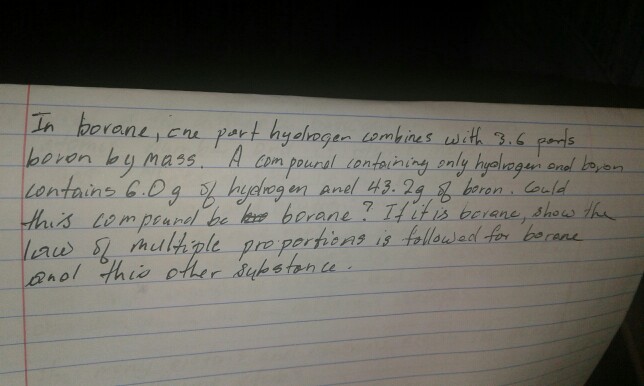 In borane, one part hydrogen combines with 3.6 parts
boron by mass. A compound containing only hydrogen and boron
contains 6.0g of hydrogen and 43.2g of boron. Could
this compound be borane? If it is borane, show the
law of multiple proportions is followed for borane
and this other substance.